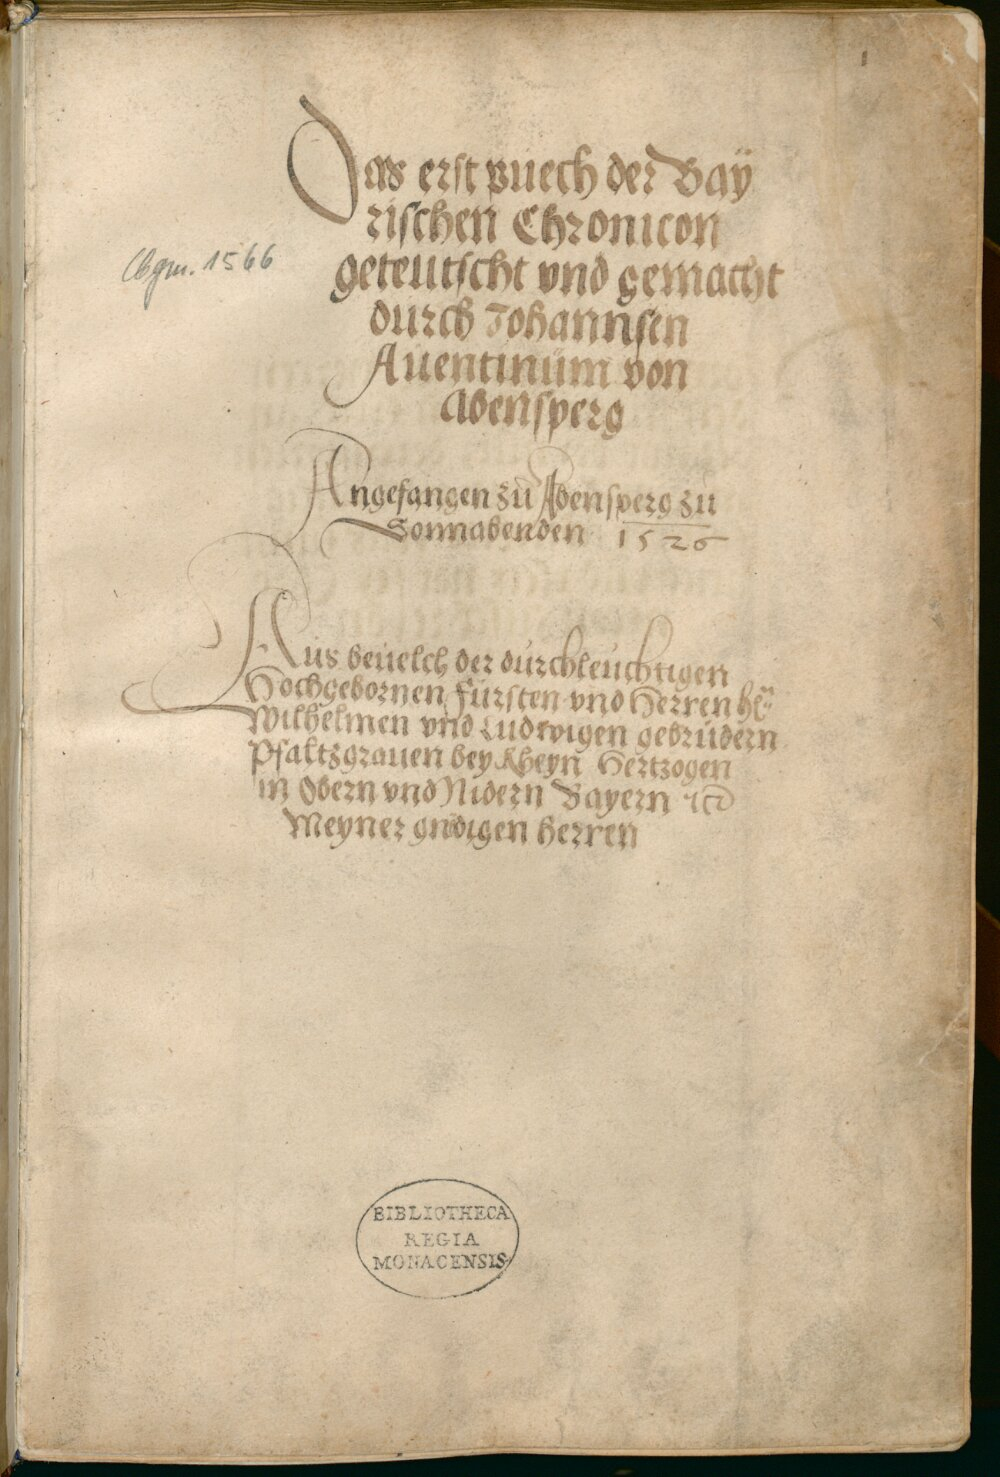 1
Das erst puech der Baÿ
rischen Chronicon
Cbgm. 1566
geteutscht vnd gemacht
durch Johannsen
Auentinum von
Abensperg
Angefangen zu Abensperg zu
Sonnabenden 1526
Aus beuelch der durchleuchtigen
Hochgebornen fursten vnd Herren
Wilhelmen vnd Ludwigen gebrudern
Pfaltzgrauen bey Rheyn Hertzogen
in Obern vnd Nidern Bayern
Meyner gnedigen herren
BIBLIOTHECA
REGIA
MONACENSIS